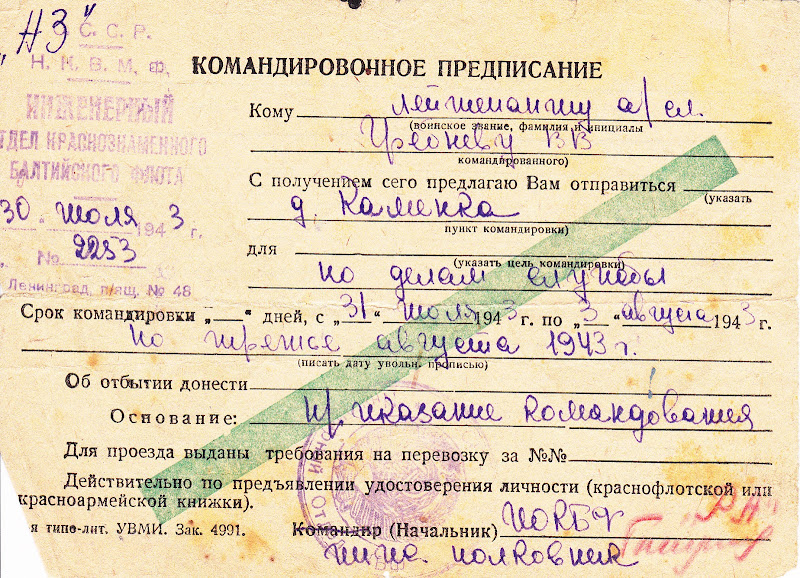 "НЗ"
С. С. Р.
Н. К. В. М. Ф.
ИНЖЕНЕРНЫЙ
ОТДЕЛ КРАСНОЗНАМЕННОГО
БАЛТИЙСКОГО ФЛОТА
30 июля 1943 г.
№ 2253
Ленинград, п/ящ. № 48
КОМАНДИРОВОЧНОЕ ПРЕДПИСАНИЕ
Кому лейтенанту а/сл.
(воинское звание, фамилия и инициалы
ВВ
командированного)
С получением сего предлагаю Вам отправиться
(указать
д. Каменка
пункт командировки)
для
(указать цель командировки)
по делам службы
Срок командировки „—“ дней, с „31“ июля 1943 г. по „3“ августа 1943 г.
по третье августа 1943 г.
(писать дату увольн. прописью)
Об отбытии донести
Основание: приказание командования
Для проезда выданы требования на перевозку за №№
Действительно по предъявлении удостоверения личности (краснофлотской или
красноармейской книжки).
я типо-лит. УВМИ. Зак. 4991.
Командир (Начальник) ИОКБФ
полковник